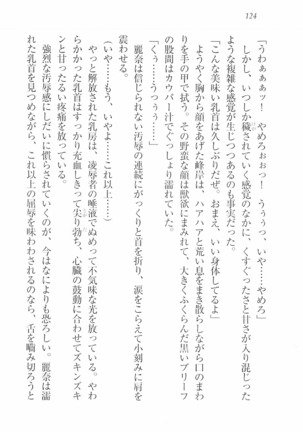 124
「うわぁぁぁッ!　やめろぉぉっ!　うぅぅっ、いや……やめろ」
しかし、いつしか穢されていく感覚のなかに、くすぐったさと甘さが入り混じった
ような複雑な感覚が生じつつあるのも事実だった。
「こんな美味い乳首は久しぶりだぜ。おまえ、いい身体してるな」
ようやく胸から顔をあげた峰岸は、ハアハアと荒い息をまき散らしながら口のまわ
りを手の甲で拭う。その野蛮な顔は獣欲にまみれて、大きくふくらんだ黒いブリーフ
の股間はカウパー汁でぐっしょり濡れていた。
「くぅ……うっうぅ……」
麗奈は信じられない汚辱の連続にがっくりと首を折り、涙をこらえて小刻みに肩を
震わせる。
（いや……もう、いやよ……これ以上……）
やっと解放された乳房は、凌辱者の唾液でぬめって不気味な光を放っている。やわ
らかかった乳首はすっかり充血しきって尖り勃ち、心臓の鼓動に合わせてズキンズキ
ンと甘ったるい疼痛を放っている。
強烈な汚辱感にしだいに慣らされていくのが、今はなによりも恐ろしい。麗奈は濡
れた乳首を見つめながら、これ以上の屈辱を味わわされるのなら、舌を噛み切ろうと